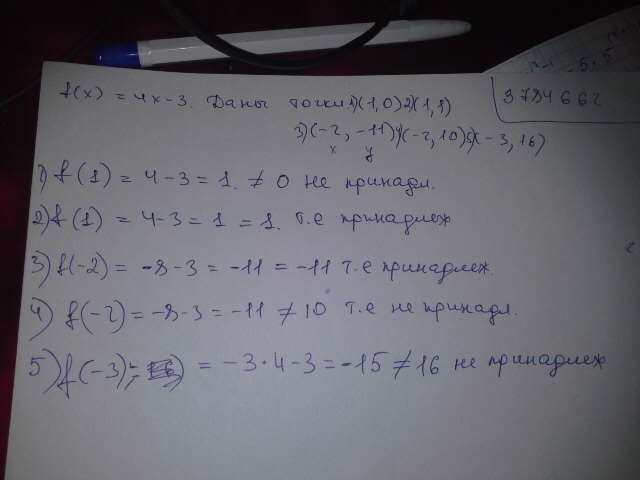 37346662
f(x) = 4x-3. Даны точки 1)(1,0) 2)(1,1)
3)(-2, -11) 4)(-2, 10) 5)(-3, 16)
x y
1) f(1) = 4-3 = 1. ≠ 0 не принадл.
2) f(1) = 4-3 = 1 = 1. т.е принадлеж
3) f(-2) = -8-3 = -11 = -11 т.е принадлеж.
4) f(-2) = -8-3 = -11 ≠ 10 т.е не принадл.
5) f(-3) = -3·4-3 = -15 ≠ 16 не принадлеж